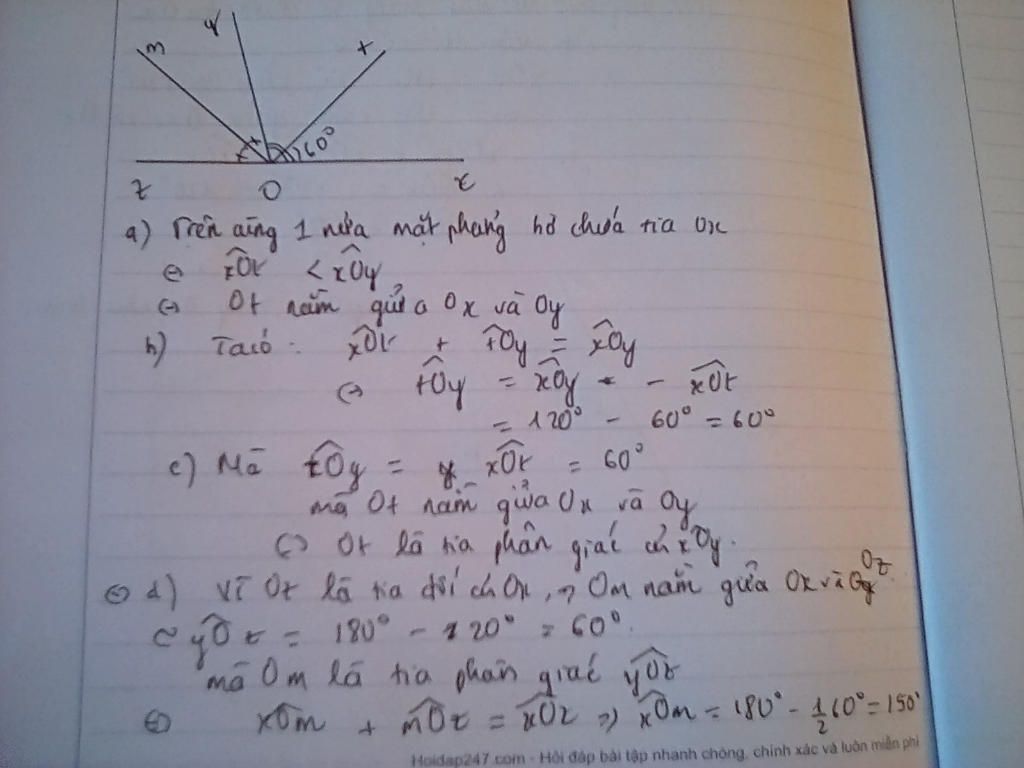 m y t
60°
z O x
a) Trên cùng 1 nửa mặt phẳng bờ chứa tia Ox
xOt < xOy
Ot nằm giữa Ox và Oy
b) Ta có: xOt + tOy = xOy
tOy = xOy - xOt
= 120° - 60° = 60°
c) Mà tOy = xOt = 60°
mà Ot nằm giữa Ox và Oy
Ot là tia phân giác của xOy.
d) Vì Oz là tia đối của Ox, => Om nằm giữa Ox và Oz
yOz = 180° - 120° = 60°.
mà Om là tia phân giác yOz
xOm + mOz = xOz => xOm = 180° - 1/2 60° = 150°
Hoidap247.com - Hỏi đáp bài tập nhanh chóng, chính xác và luôn miễn phí